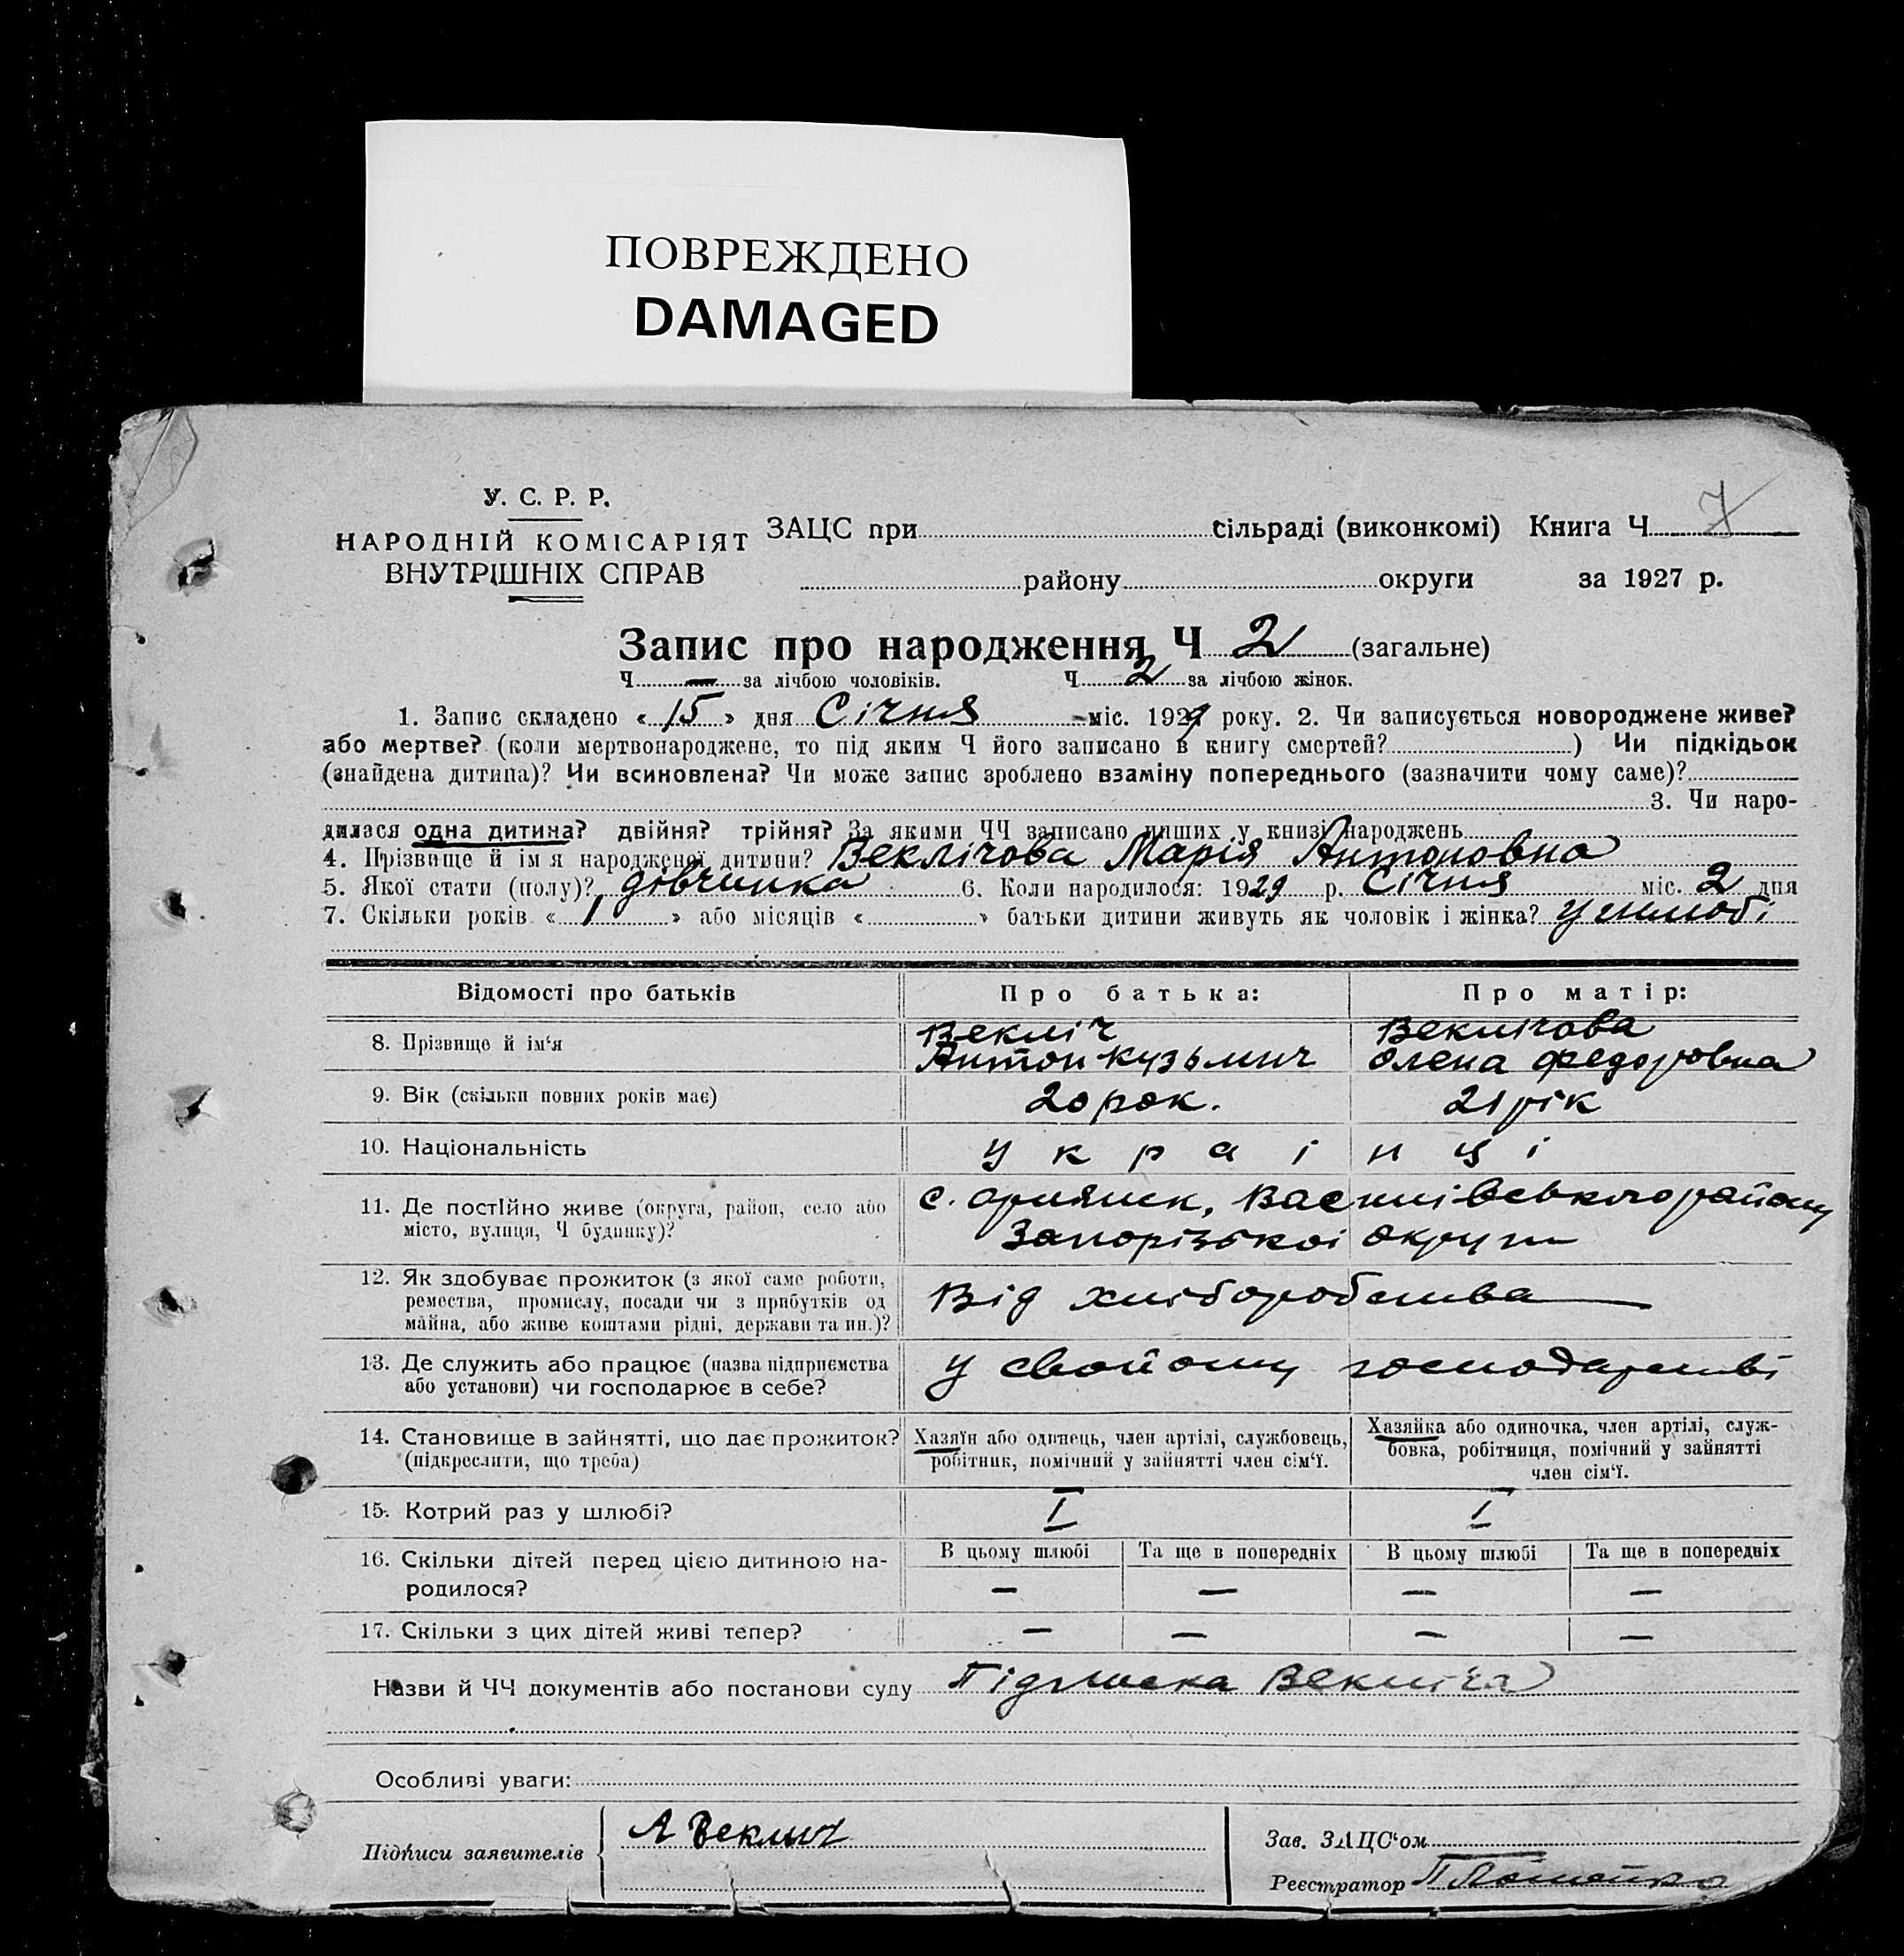 ПОВРЕЖДЕНО
DAMAGED
У. С. Р. Р.
НАРОДНІЙ КОМІСАРІЯТ
ВНУТРІШНІХ СПРАВ
ЗАЦС при сільраді (виконкомі) Книга Ч 7
району округи за 1927 р.
Запис про народження Ч 2 (загальне)
Ч — за лічбою чоловіків. Ч 2 за лічбою жінок.
1. Запис складено « 15 » дня Січня міс. 1929 року. 2. Чи записується новороджене живе?
або мертве? (коли мертвонароджене, то під яким Ч його записано в книгу смертей? ) Чи підкідьок
(знайдена дитина)? Чи всиновлена? Чи може запис зроблено взаміну попереднього (зазначити чому саме)?
3. Чи наро-
дилася одна дитина? двійня? трійня? За якими ЧЧ записано инших у книзі народжень
4. Прізвище й ім'я народженої дитини? Веклічова Марія Антоновна
5. Якої стати (полу)? дівчинка 6. Коли народилося: 1929 р. Січня міс. 2 дня
7. Скільки років « 1 » або місяців « » батьки дитини живуть як чоловік і жінка? у шлюбі
Відомості про батьків Про батька: Про матір:
8. Прізвище й ім'я Векліч Веклічова
Антон Кузьмич Олена Федоровна
9. Вік (скільки повних років має) 20 рок. 21 рік
10. Національність українці
11. Де постійно живе (округа, район, село або с. Орлянск, Василівського району
місто, вулиця, Ч будинку)? Запорізької округи
12. Як здобуває прожиток (з якої саме роботи,
ремества, промислу, посади чи з прибутків од Від хліборобства
майна, або живе коштами рідні, держави та ин.)?
13. Де служить або працює (назва підприємства у свойому господарстві
або установи) чи господарює в себе?
14. Становище в зайнятті, що дає прожиток? Хазяїн або одинець, член артілі, службовець, Хазяйка або одиночка, член артілі, служ-
(підкреслити, що треба) робітник, помічний у зайнятті член сім'ї. бовка, робітниця, помічний у зайнятті
член сім'ї.
15. Котрий раз у шлюбі? I I
16. Скільки дітей перед цією дитиною на- В цьому шлюбі Та ще в попередніх В цьому шлюбі Та ще в попередніх
родилося? — — — —
17. Скільки з цих дітей живі тепер? — — — —
Назви й ЧЧ документів або постанови суду Підписка Векліча
Особливі уваги:
Підписи заявителів А Веклич
Зав. ЗАЦС'ом
Реєстратор